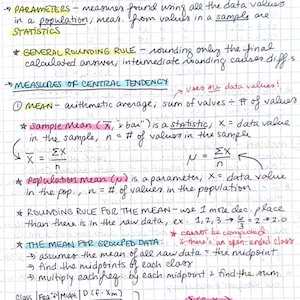 → PARAMETERS - measures found using all the data values
in a population; meas. from values in a sample are
STATISTICS
★ GENERAL ROUNDING RULE - rounding only the final
calculated answer, intermediate rounding causes diff-s
→ MEASURES OF CENTRAL TENDENCY
uses ALL data values!
① MEAN - arithmetic average, sum of values ÷ # of values
★ Sample Mean (X̄, "x bar") is a statistic, x = data value
in the sample, n = # of values in the sample
X̄ = ΣX/n
μ = ΣX/n
★ Population Mean (μ) is a parameter, x = data value
in the pop., n = # of values in the population
★ ROUNDING RULE FOR THE MEAN - use 1 more dec. place
than there is in the raw data, ex: 1, 2, 3 → 6/3 = 2 → 2.0
★ cannot be computed
if there's an open-ended class
★ THE MEAN FOR GROUPED DATA:
→ assumes the mean of all raw data = the midpoint
→ find the midpoints of each class
→ multiply each freq. by each midpoint & find the sum
Class
D (f · Xm)